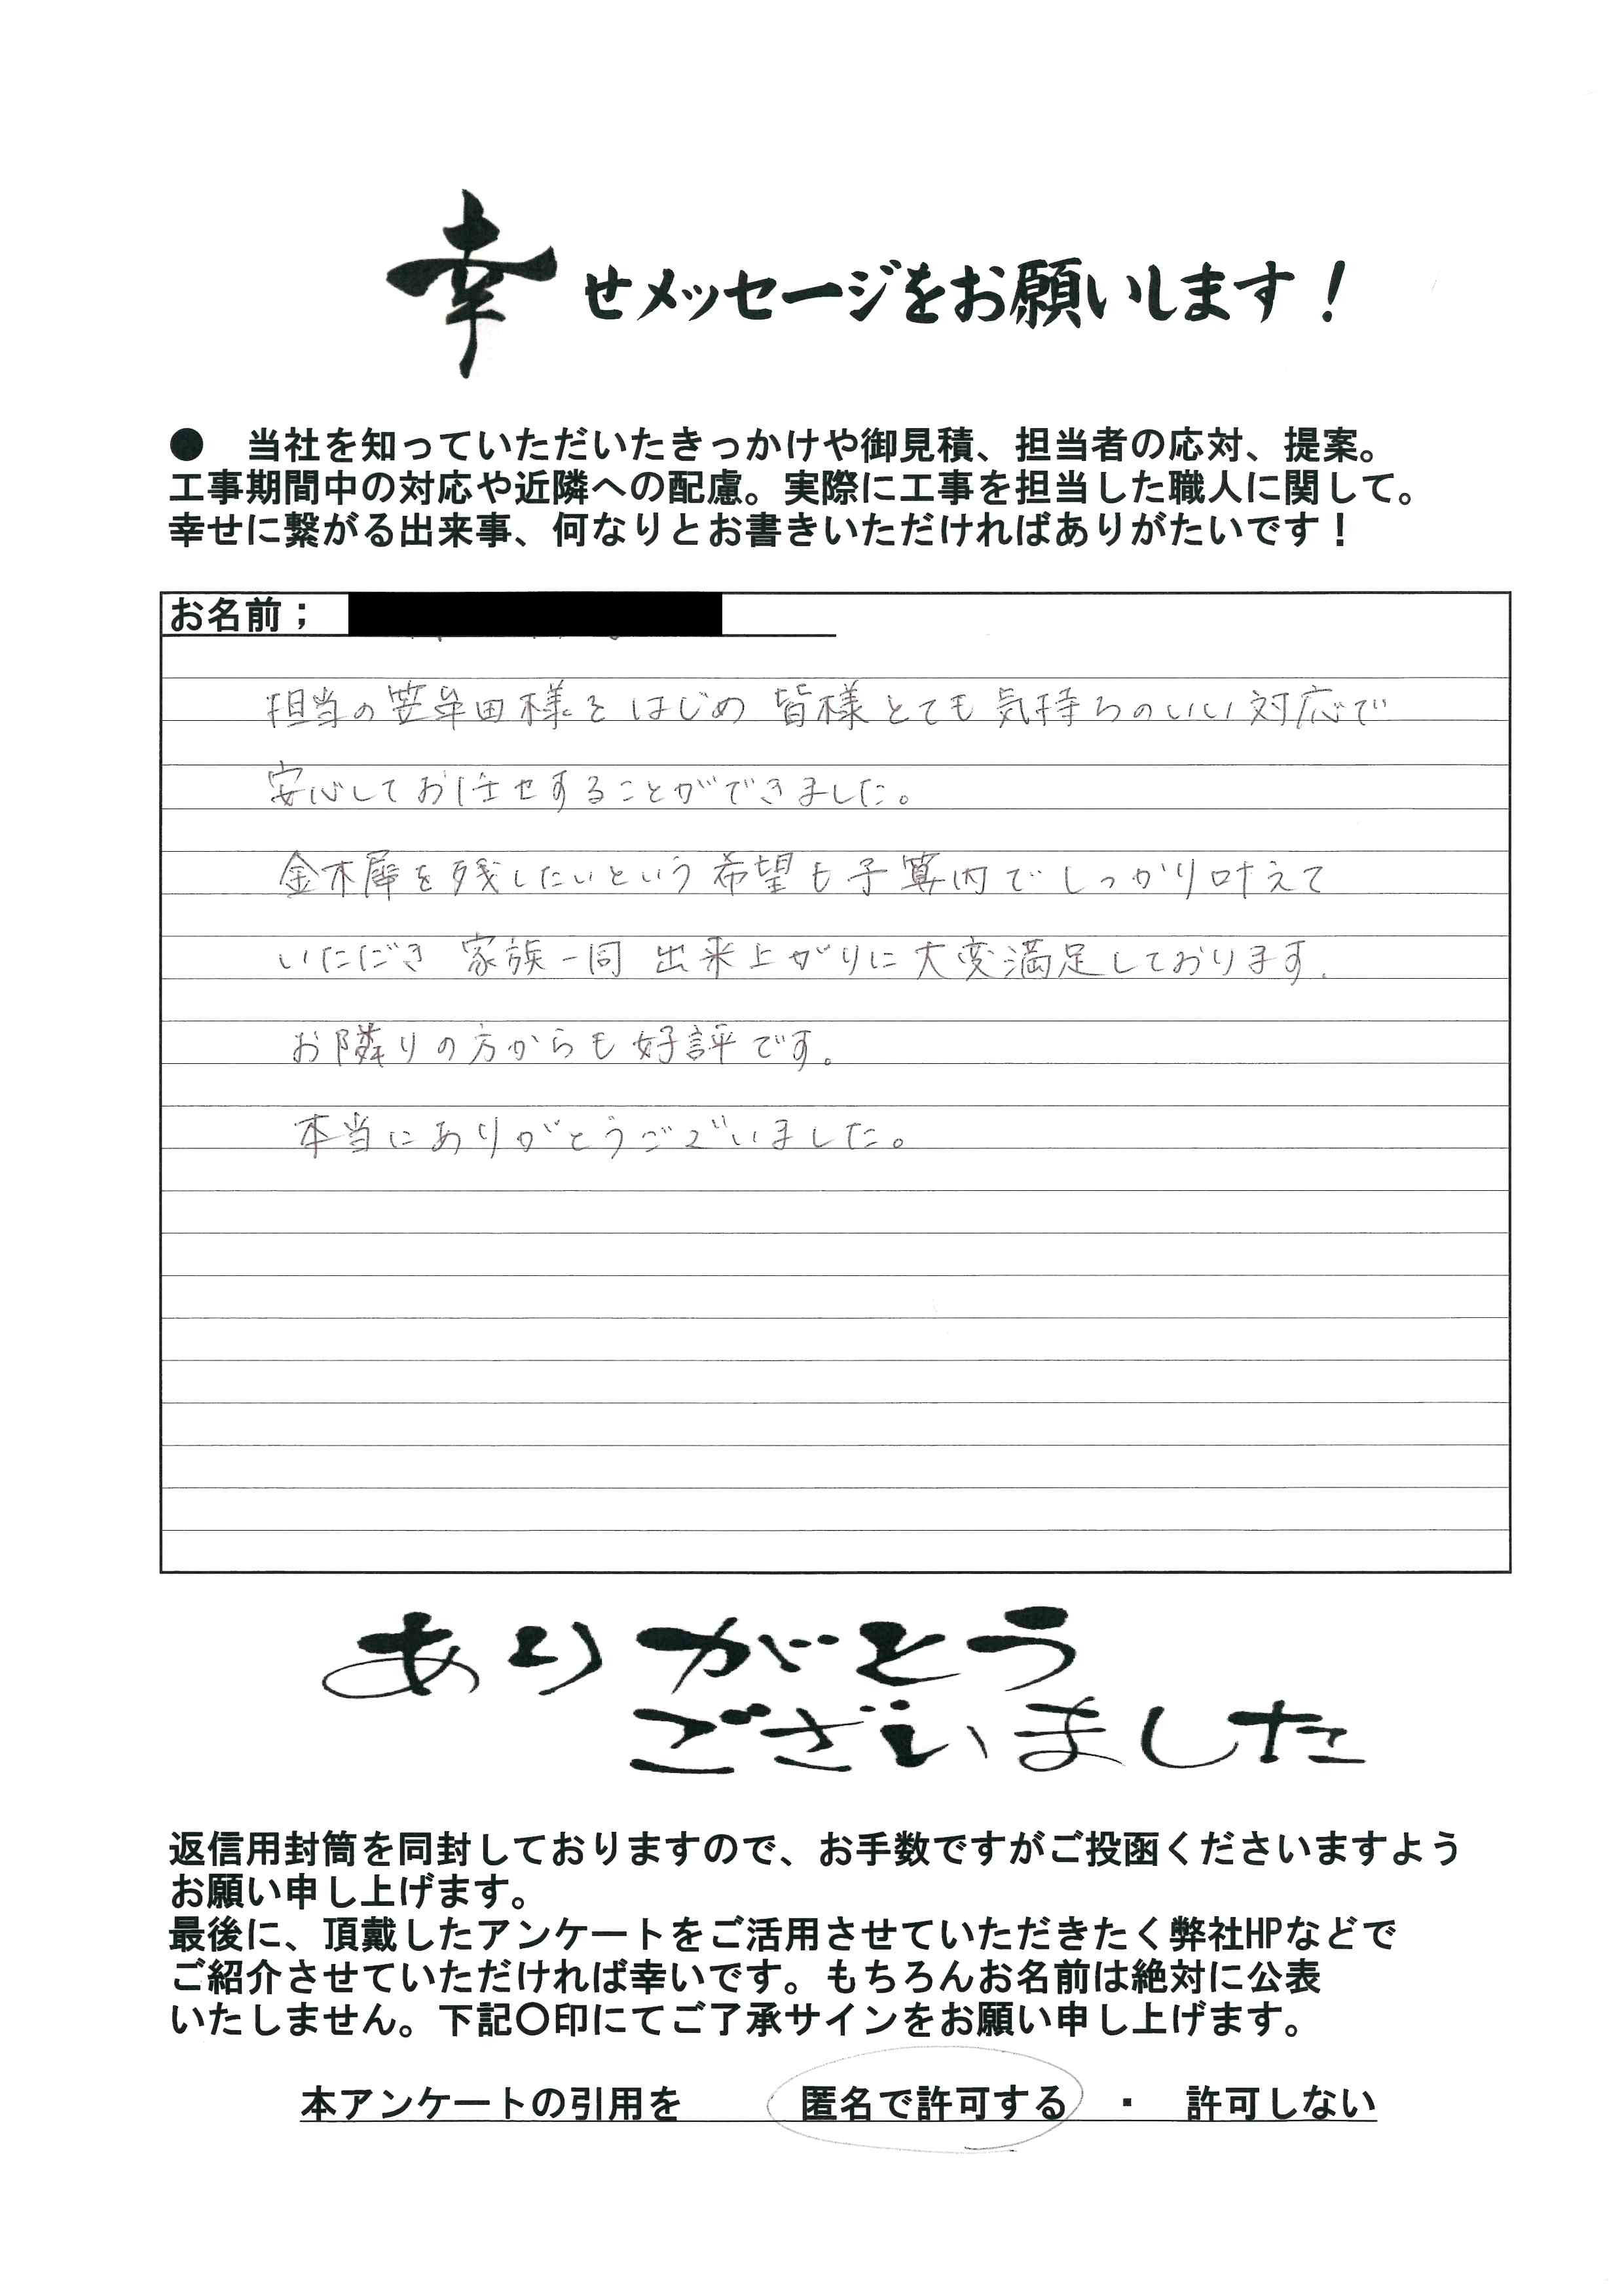 幸せメッセージをお願いします！
● 当社を知っていただいたきっかけや御見積、担当者の応対、提案。
工事期間中の対応や近隣への配慮。実際に工事を担当した職人に関して。
幸せに繋がる出来事、何なりとお書きいただければありがたいです！
お名前；
担当の笠牟田様をはじめ 皆様とても気持ちのいい対応で
安心してお任せすることができました。
金木犀を残したいという希望も予算内でしっかり叶えて
いただき 家族一同 出来上がりに大変満足しております.
お隣りの方からも好評です。
本当にありがとうございました。
ありがとう
ございました
返信用封筒を同封しておりますので、お手数ですがご投函くださいますよう
お願い申し上げます。
最後に、頂戴したアンケートをご活用させていただきたく弊社HPなどで
ご紹介させていただければ幸いです。もちろんお名前は絶対に公表
いたしません。下記〇印にてご了承サインをお願い申し上げます。
本アンケートの引用を 匿名で許可する ・ 許可しない